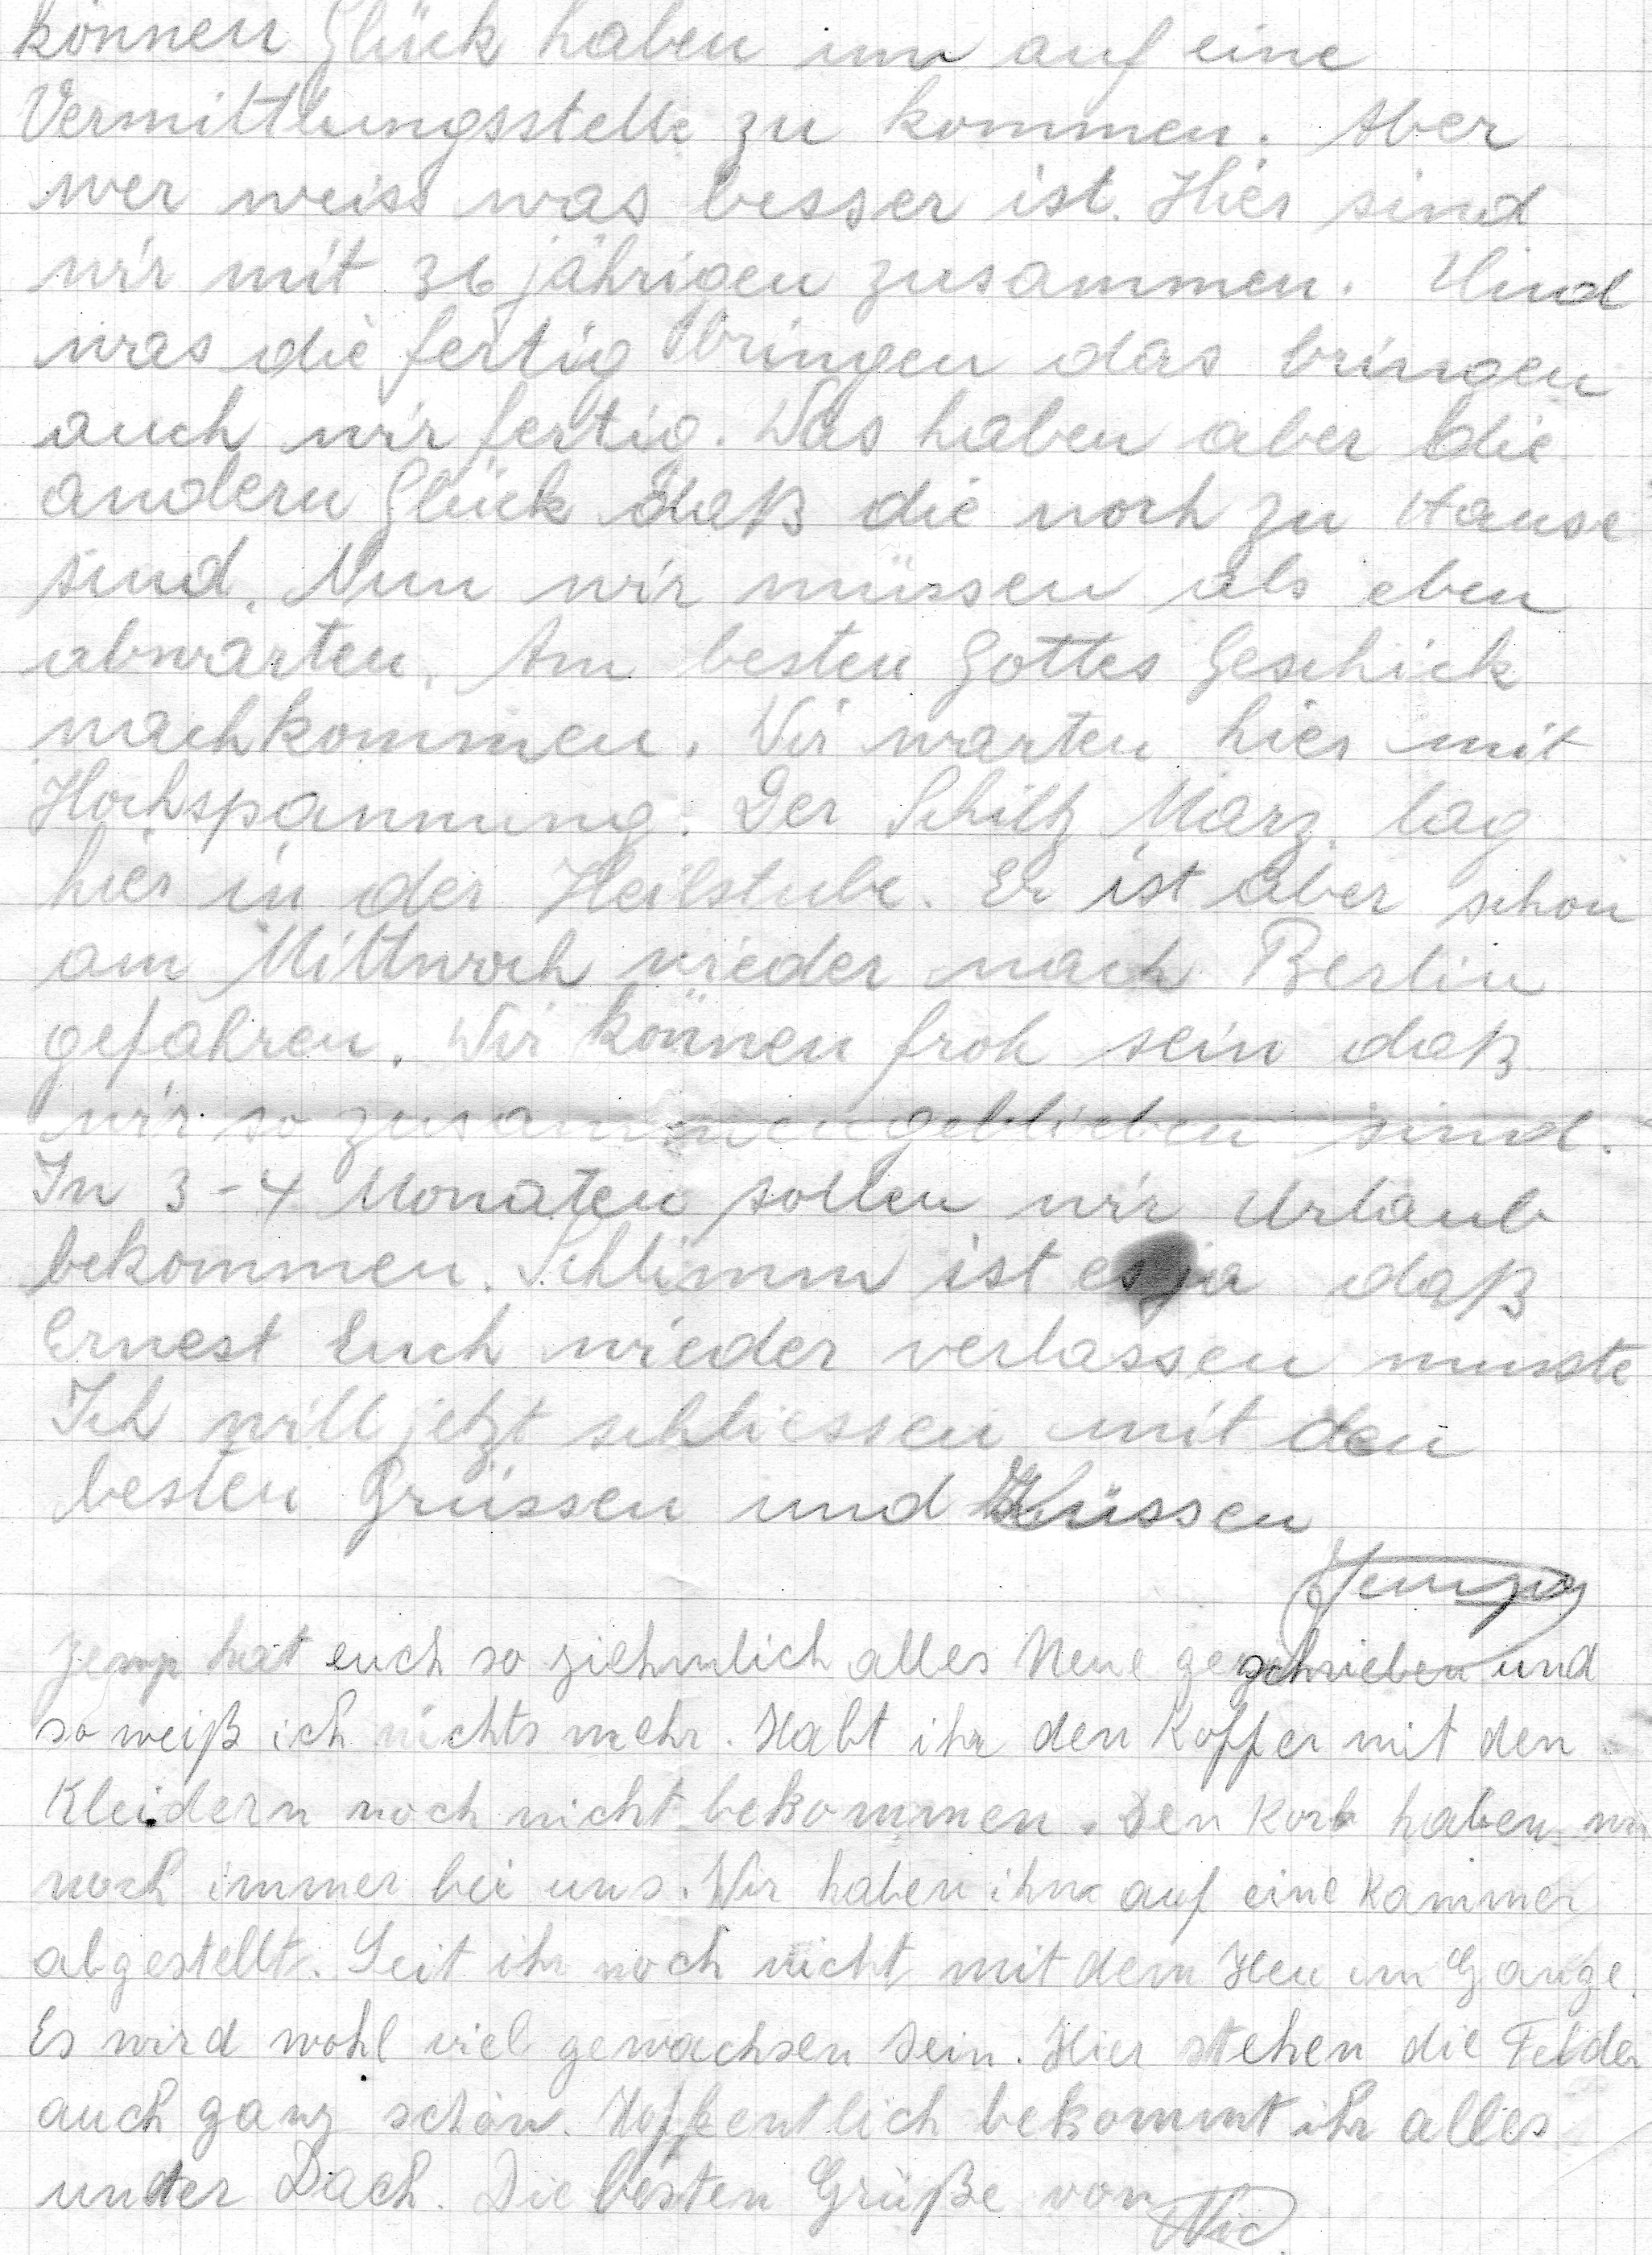 können Glück haben um auf eine
Vermittlungsstelle zu kommen. Aber
wer weiss was besser ist. Hier sind
wir mit 36 jährigen zusammen. Und
was die fertig bringen das bringen
auch wir fertig. Was haben aber die
andern Glück daß die noch zu Hause
sind. Nun wir müssen als eben
abwarten. Am besten Gottes Geschick
nachkommen. Wir warten hier mit
Hochspannung. Der Schiltz Marz. lag
hier in der Heilstube. Er ist aber schon
am Mittwoch wieder nach Berlin
gefahren. Wir können froh sein daß
wir so zusammengeblieben sind.
In 3-4 Monaten sollen wir Urlaub
bekommen. Schlimm ist es ja daß
Ernest Euch wieder verlassen musste
Ich will jetzt schliessen mit den
besten Grüssen und Küssen
Jemp hat euch so ziehmlich alles Neue geschrieben und
so weiß ich nichts mehr. Habt ihr den Koffer mit den
Kleidern noch nicht bekommen. Den Korb haben wir
noch immer bei uns. Wir haben ihn auf eine Kammer
abgestellt. Seit ihr noch nicht mit dem Heu im Gange.
Es wird wohl viel gewachsen sein. Hier stehen die Felder
auch ganz schön. Hoffentlich bekommt ihr alles
unter Dach. Die besten Grüße von
Nic